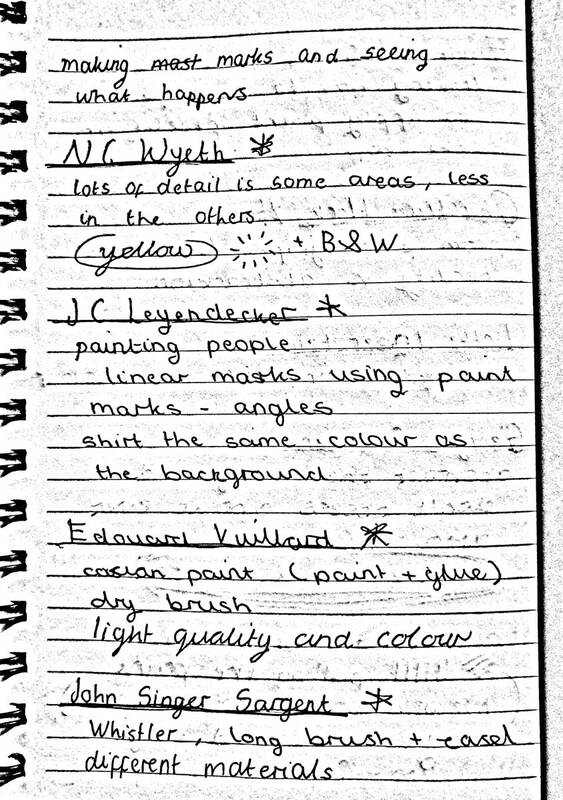 making mast marks and seeing
what happens
N C Wyeth *
lots of detail is some areas, less
in the others
yellow + B & W
J C Leyendecker *
painting people
linear masks using paint
marks - angles
shirt the same colour as
the background
Edouard Vuillard *
casian paint (paint + glue)
dry brush
light quality and colour
John Singer Sargent *
Whistler, long brush + easel
different materials